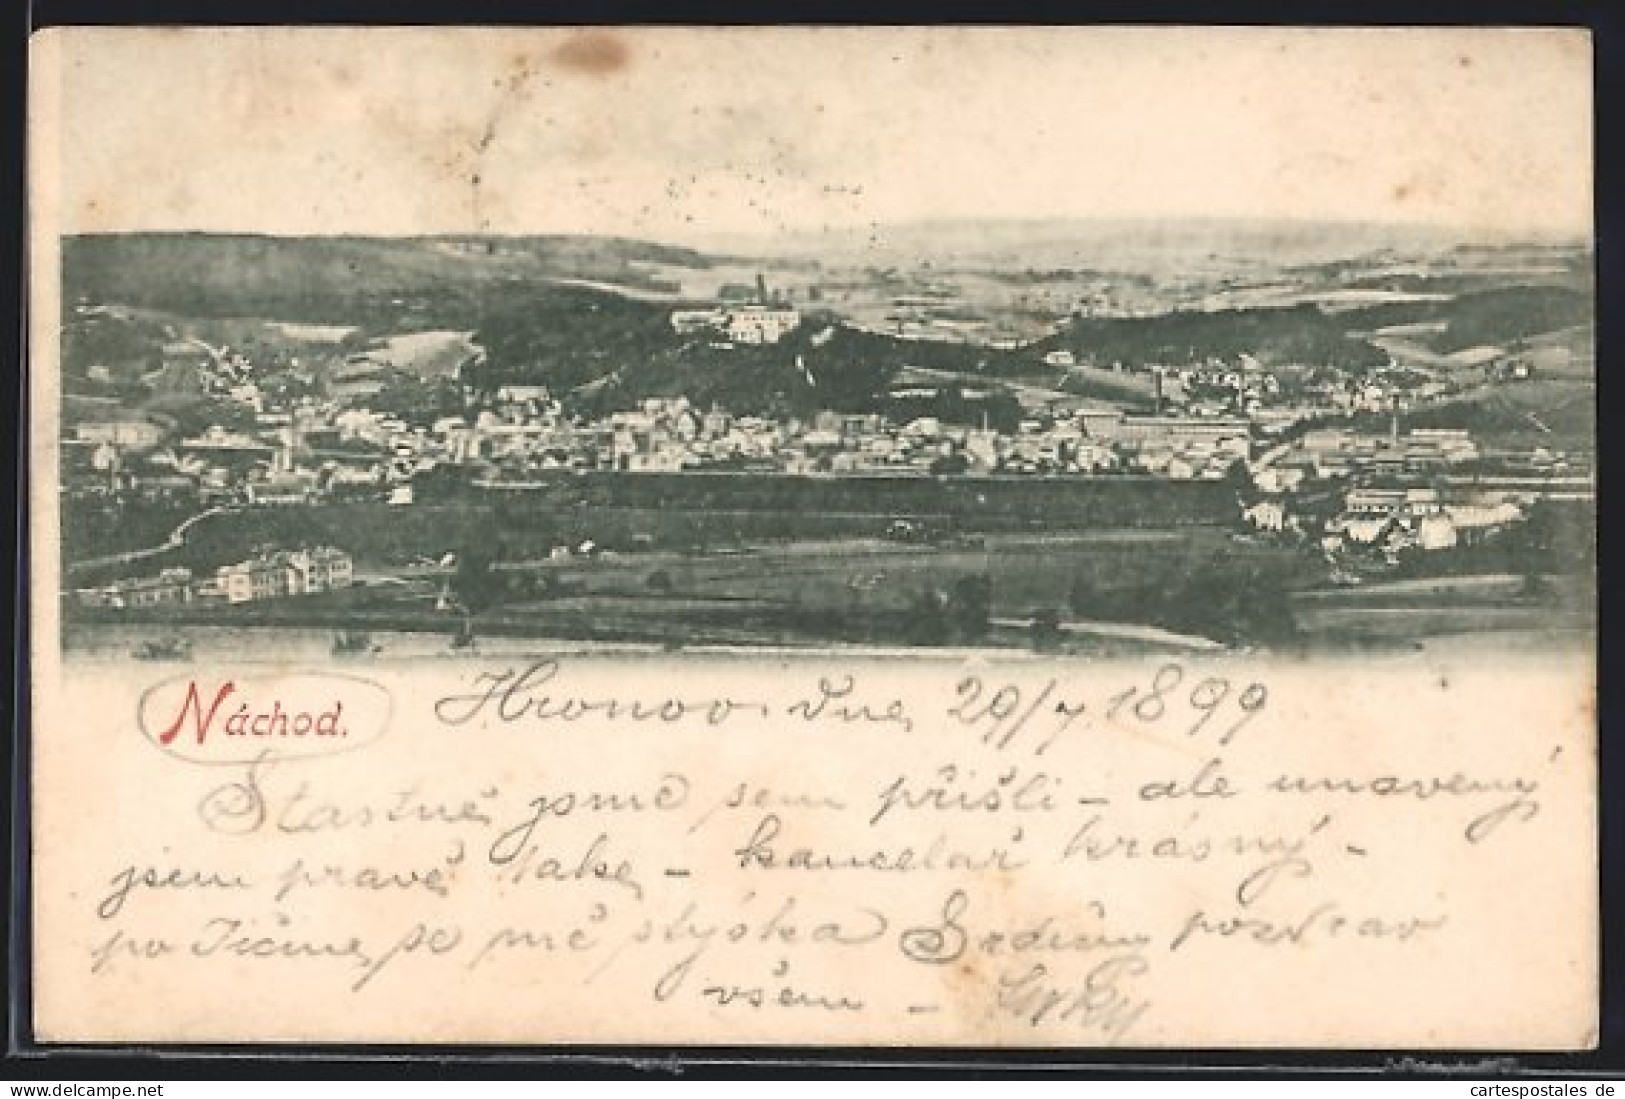 Náchod.
Hronov dne 29/7 1899
Stastně jsme sem přišli – ale unavený
jsem pravě take – kancelař krásný –
po Jičine se mě stýska Srdečny pozdrav
všem –
cartespostales de